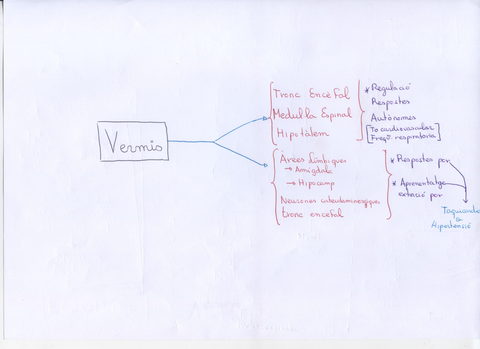 Vermis
Tronc Encefal
Medul·la Espinal
Hipotàlem
* Regulació
Respostes
Autònomes
[To cardiovascular
Freqü. respiratoria]
Àrees Límbiques
→ Amígdala
→ Hipocamp
Neurones catecolaminergiques
tronc encefal
* Respostes por
* Aprenentatge
extinció por
Taquicardia
a
Hipertensió